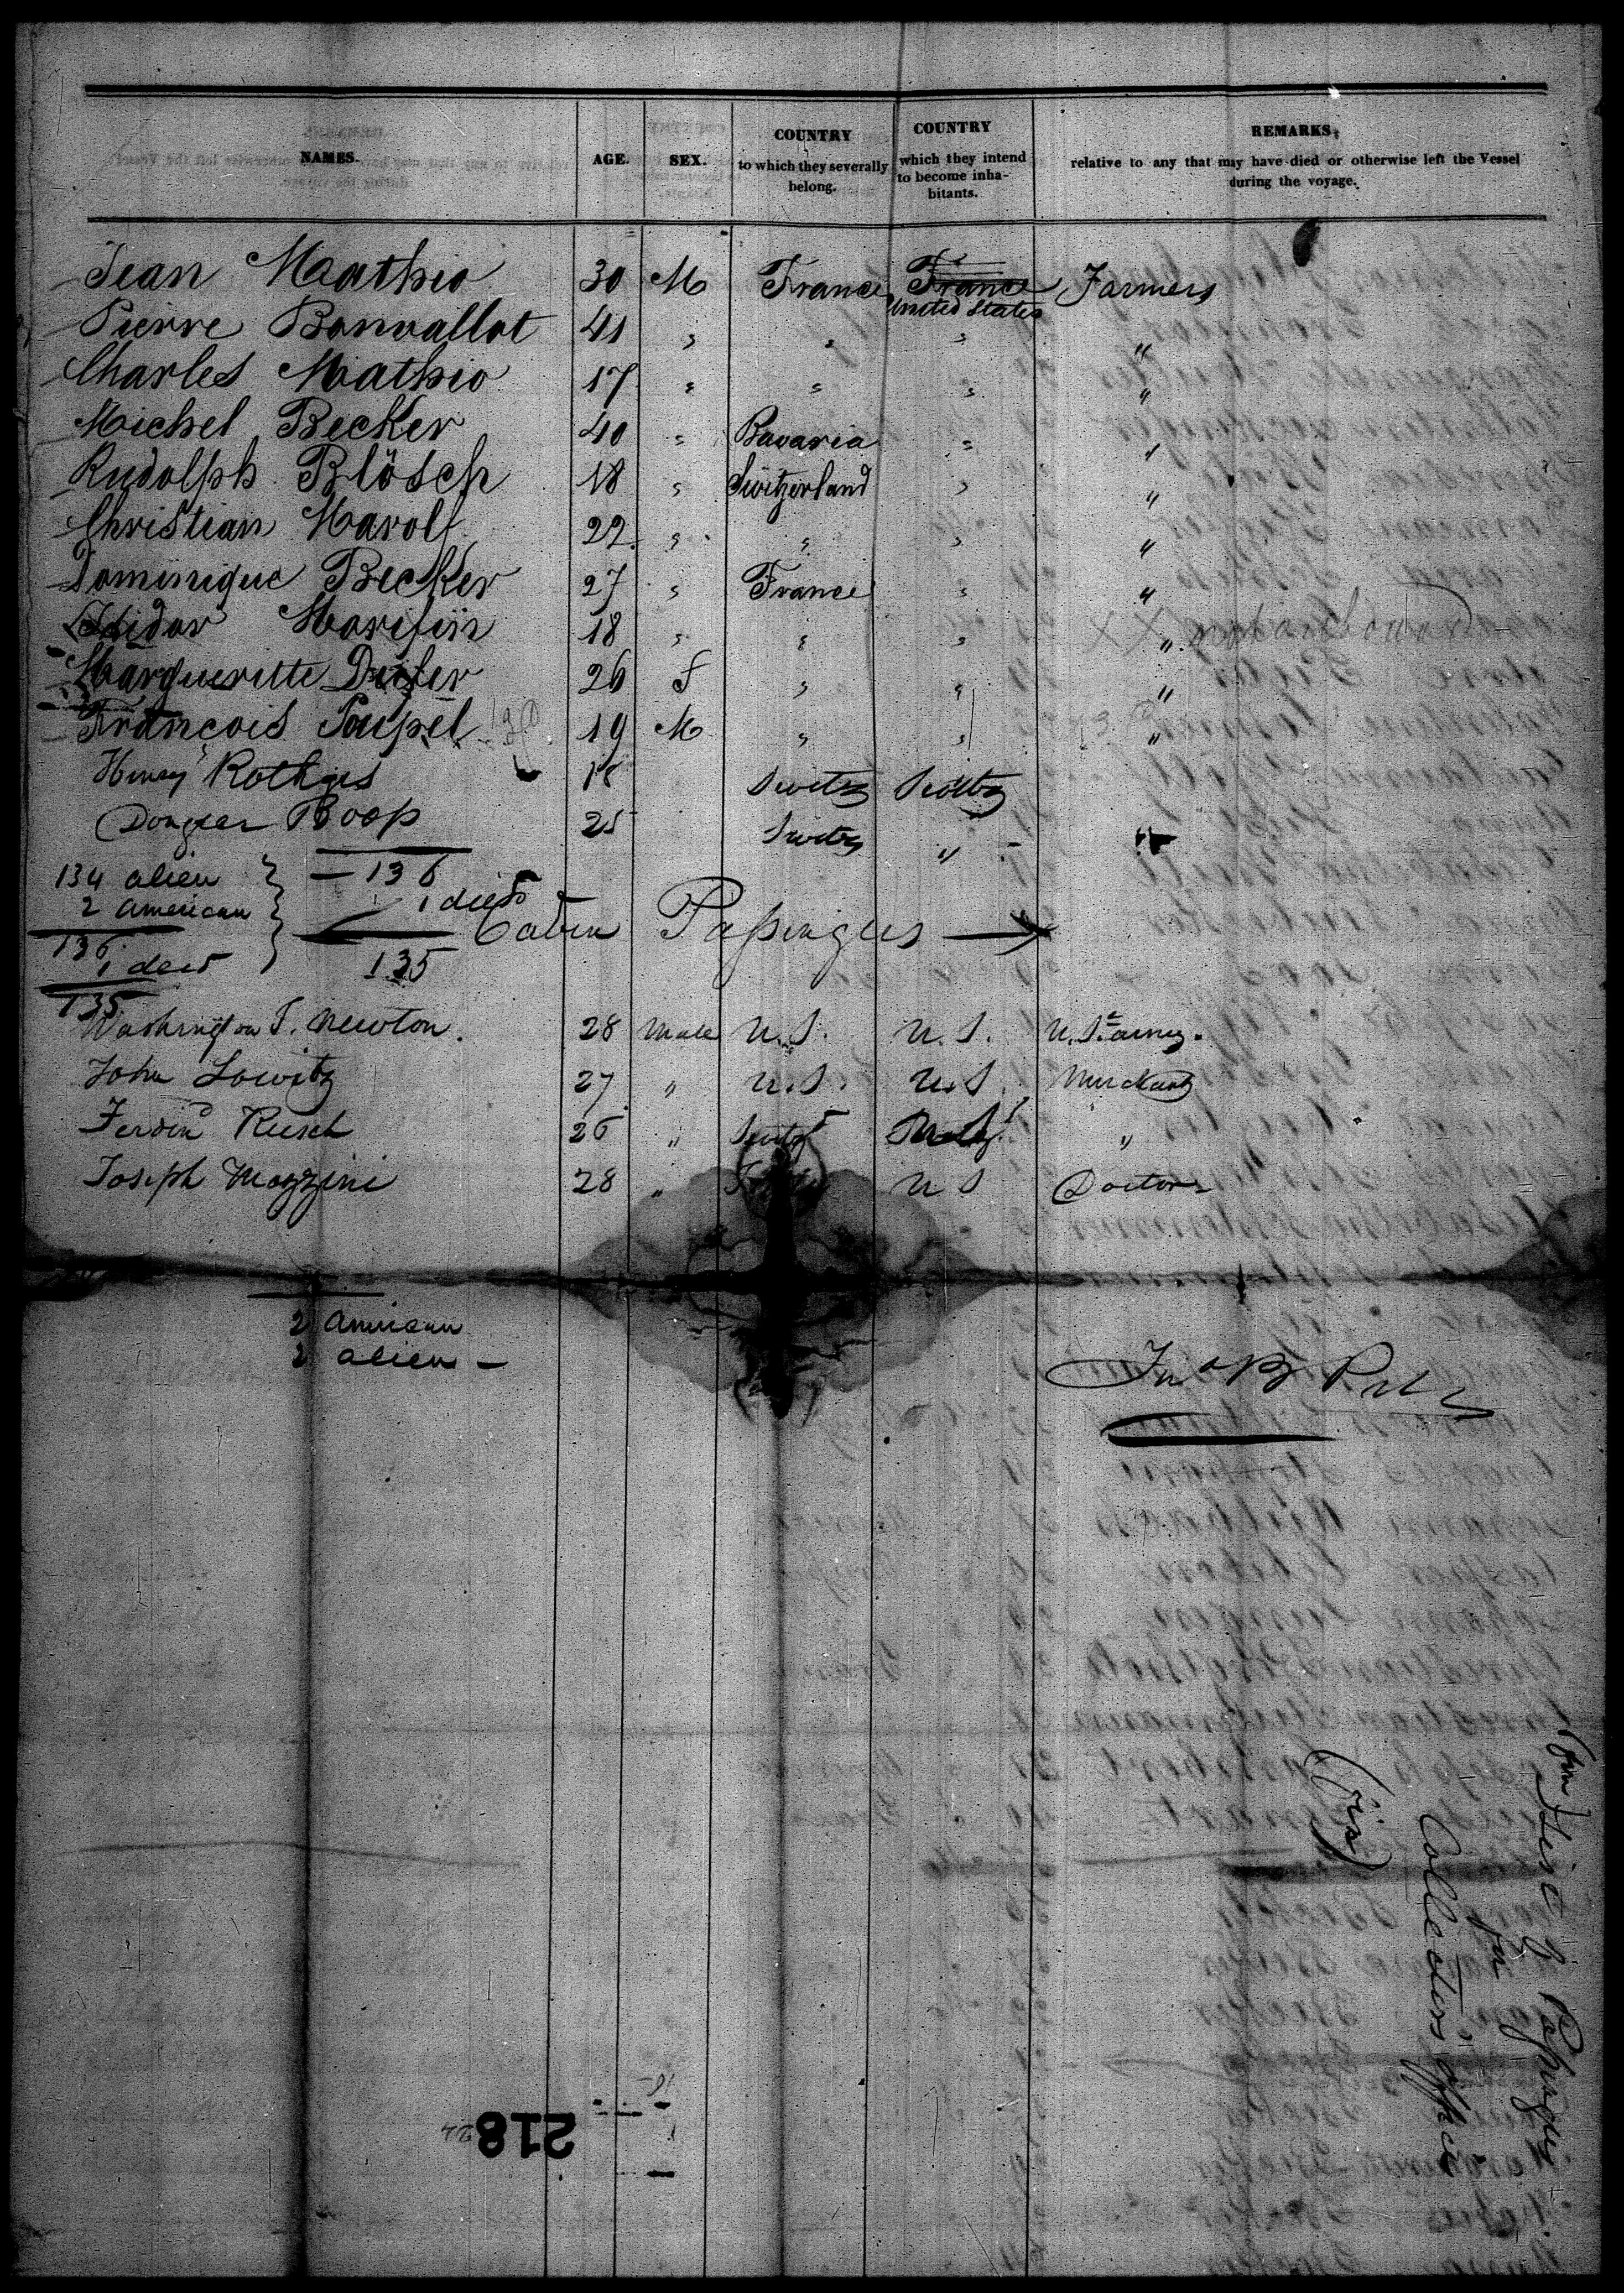 NAMES. AGE. SEX. COUNTRY to which they severally belong. COUNTRY which they intend to become inhabitants. REMARKS, relative to any that may have died or otherwise left the Vessel during the voyage.
Jean Mathio 30 M France France United States Farmers
Pierre Bonvallot 41 " " " "
Charles Mathio 17 " " " "
Michel Becker 40 " Bavaria " "
Rudolph Blösch 18 " Switzerland " "
Christian Marolf 22 " " " "
Dominique Becker 27 " France " "
18 " " " " not on board
Margueritte 26 f " " "
François 19 M " " "
Henry 18 Switz
25 Switz "
134 alien 136
2 American 1 died
136 Cabin Passengers
1 died 135
135
Washington I. Newton. 28 Male U.S. U.S. U.S. army.
John Lowitz 27 " U.S. U.S. Merchant
Ferdin Rusch 26 " Switz "
Joseph Mazzini 28 " U S Doctor
2 American
2 alien
List of Passengers
for
Collectors office
218